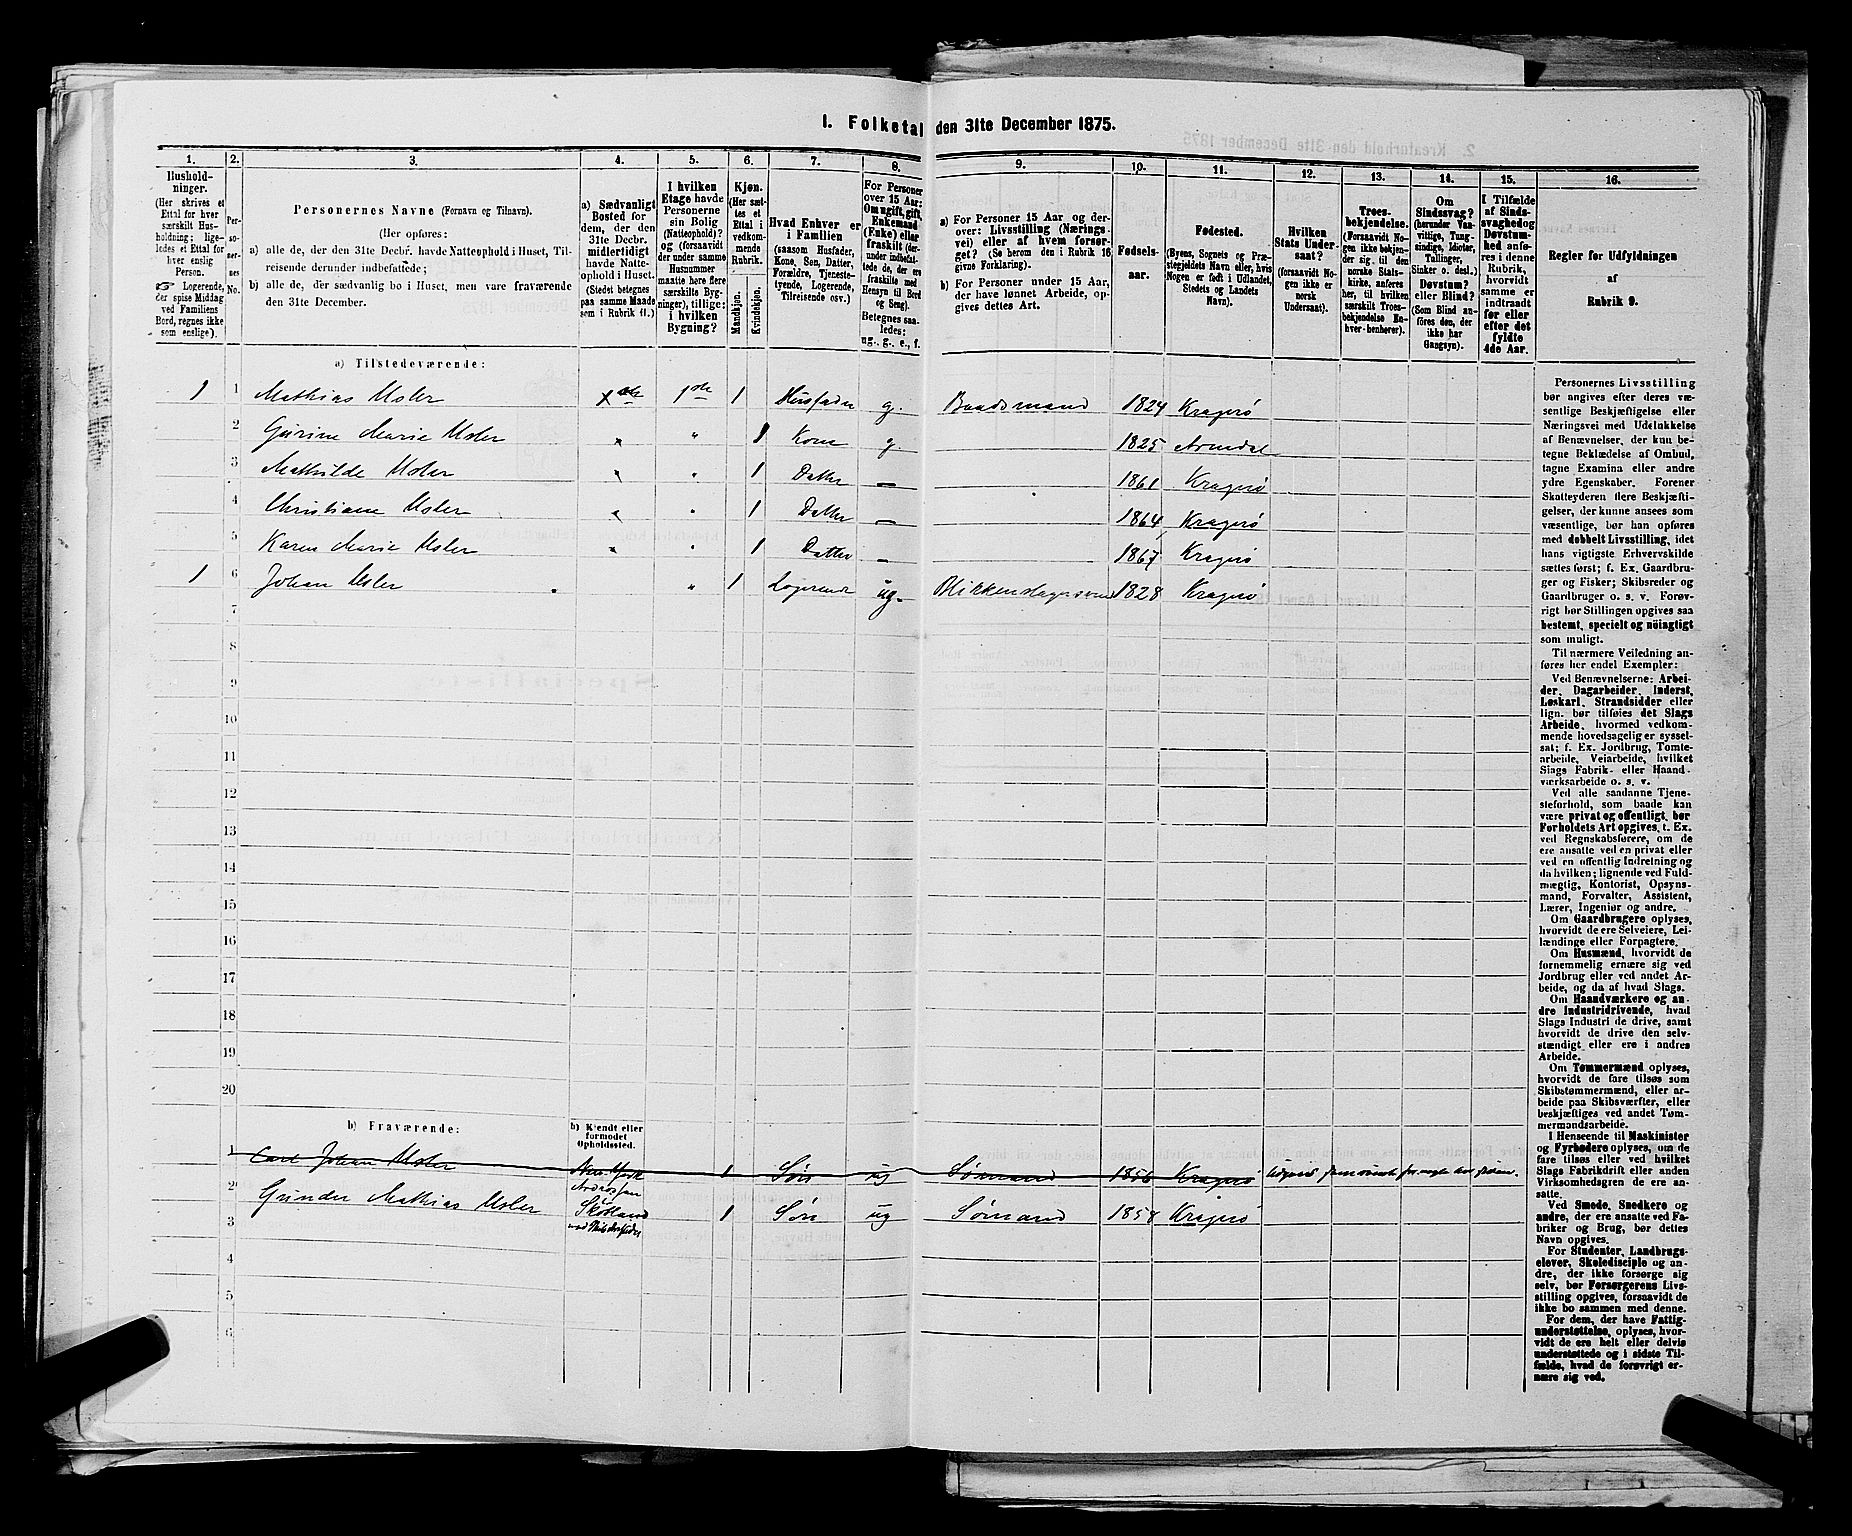 1. Folketal den 31te December 1875.
1. 2. 3. 4. 5. 6. 7. 8. 9. 10. 11. 12. 13. 14. 15. 16.
Hushold-
ninger.
(Her skrives et
Ettal for hver
særskilt Hus-
holdning; lige-
ledes et Ettal for
hver enslig
Person.
☞ Logerende,
der spise Middag
ved Familiens
Bord, regnes ikke
som enslige).
Per-
so-
ner-
nes
No.
Personernes Navne (Fornavn og Tilnavn).
(Her opføres:
a) alle de, der den 31te Decbr. havde Natteophold i Huset, Til-
reisende derunder indbefattede;
b) alle de, der sædvanlig bo i Huset, men vare fraværende
den 31te December.
a) Sædvanligt
Bosted for
dem, der den
31te Decbr.
midlertidigt
havde Natte-
ophold i Huset.
(Stedet betegnes
paa samme Maade
som i Rubrik 11.)
I hvilken
Etage havde
Personerne
sin Bolig
(Natteophold)?
og (forsaavidt
der under samme
Husnummer
maatte høre flere
særskilte Byg-
ninger), tillige:
i hvilken
Bygning?
Kjøn.
(Her sæt-
tes et
Ettal i
vedkom-
mende
Rubrik.
Mandkjøn.
Kvindekjøn.
Hvad Enhver er
i Familien
(saasom Husfader,
Kone, Søn, Datter,
Forældre, Tjeneste-
tyende, Logerende,
Tilreisende osv.)
For Personer
over 15 Aar:
Om ugift, gift,
Enkemand
(Enke) eller
fraskilt (der-
under indbefat-
tede de, der ere
fraskilte med
Hensyn til Bord
og Seng).
Betegnes saa-
ledes:
ug., g., e., f.
a) For Personer 15 Aar og der-
over: Livsstilling (Nærings-
vei) eller af hvem forsør-
get? (Se herom den i Rubrik 16
givne Forklaring).
b) For Personer under 15 Aar,
der have lønnet Arbeide, op-
gives dettes Art.
Fødsels-
aar.
Fødested.
(Byens, Sognets og Præ-
stegjeldets Navn eller, hvis
Nogen er født i Udlandet,
Stedets og Landets
Navn).
Hvilken
Stats Under-
saat?
(forsaavidt No-
gen ikke er
norsk
Undersaat).
Troes-
bekjendelse.
(Forsaavidt No-
gen ikke bekjen-
der sig til den
norske Stats-
kirke, anføres
her, til hvilken
særskilt Troes-
bekjendelse En-
hver henhører).
Om
Sindssvag?
(herunder Van-
vittige, Tung-
sindige, Idioter,
Tullinger,
Sinker o. desl.)
Døvstum?
eller Blind?
(Som Blind an-
føres den, der
ikke har
Gangsyn).
I Tilfælde
af Sinds-
svaghed og
Døvstum-
hed anfø-
res i denne
Rubrik,
hvorvidt
samme er
indtraadt
før eller
efter det
fyldte
4de Aar.
Regler for Udfyldningen
af
Rubrik 9.
a) Tilstedeværende:
1 1 Mathias Usler 1ste 1 Husfader g. Baadsmand 1824 Kragerø
2 Gurine Marie Usler " 1 Kone g. 1825 Arendal
3 Mathilde Usler " 1 Datter — 1861 Kragerø
4 Christiane Usler " 1 Datter — 1864 Kragerø
5 Karen Marie Usler " 1 Datter — 1867 Kragerø
1 6 Johan Usler " 1 Logerende ug. Blikkenslagersvend 1828 Kragerø
7
8
9
10
11
12
13
14
15
16
17
18
19
20
b) Fraværende:
b) Kjendt eller
formodet
Opholdssted.
1 Carl Johan Usler New York 1 Søn ug Sømand 1856 Kragerø
2 Gunder Mathias Usler Skotland 1 Søn ug Sømand 1858 Kragerø
3
4
5
6
Personernes Livsstilling
bør angives efter deres væ-
sentlige Beskjæftigelse eller
Næringsvei med Udelukkelse
af Benævnelser, der kun be-
tegne Beklædelse af Ombud,
tagne Examina eller andre
ydre Egenskaber. Forener
Skatteyderen flere Beskjæfti-
gelser, der kunne ansees som
væsentlige, bør han opføres
med dobbelt Livsstilling, idet
hans vigtigste Erhvervskilde
sættes først; f. Ex. Gaardbru-
ger og Fisker; Skibsreder og
Gaardbruger o. s. v. Forøv-
rigt bør Stillingen opgives saa
bestemt, specielt og nöiagtigt
som muligt.
Til nærmere Veiledning an-
føres her endel Exempler:
Ved Benævnelserne: Arbei-
der, Dagarbeider, Inderst,
Løskarl, Strandsidder eller
lign. bør tilføies det Slags
Arbeide, hvormed vedkom-
mende hovedsagelig er syssel-
sat; f. Ex. Jordbrug, Tomte-
arbeide, Veiarbeide, hvilket
Slags Fabrik- eller Haand-
værksarbeide o. s. v.
Ved alle saadanne Tjene-
steforhold, som baade kan
være privat og offentligt, bør
Forholdets Art opgives, t. Ex.
ved Regnskabsførere, om de
ere ansatte ved en privat eller
ved en offentlig Indretning og
da hvilken; lignende ved Fuld-
mægtig, Kontorist, Opsyns-
mand, Forvalter, Assistent,
Lærer, Ingeniør og andre.
Om Gaardbrugere oplyses,
hvorvidt de ere Selveiere, Lei-
lændinge eller Forpagtere.
Om Husmænd, hvorvidt de
fornemmelig ernære sig ved
Jordbrug eller ved andet Ar-
beide, og da af hvad Slags.
Om Haandværkere og an-
dre Industridrivende, hvad
Slags Industri de drive, samt
hvorvidt de drive den selv-
stændigt eller ere i andres
Arbeide.
Om Tømmermænd oplyses,
hvorvidt de fare tilsøs som
Skibstømmermænd, eller ar-
beide paa Skibsværfter, eller
beskjæftiges ved andet Tøm-
mermandsarbeide.
I Henseende til Maskinister
og Fyrbødere oplyses, om de
fare tilsøs eller ved hvilket
Slags Fabrikdrift eller anden
Virksomhedsgren de ere an-
satte.
Ved Smede, Snedkere og
andre, der ere ansatte ved Fa-
briker og Brug, bør dettes
Navn opgives.
For Studenter, Landbrugs-
elever, Skoledisciple og an-
dre, der ikke forsørge sig
selv, bør Forsørgerens Livs-
stilling opgives, forsaavidt de
ikke bo sammen med denne.
For dem, der have Fattig-
understøttelse, oplyses, hvor-
vidt de ere helt eller delvis
understøttede og i sidste Til-
fælde, hvad de forøvrigt er-
nære sig ved.